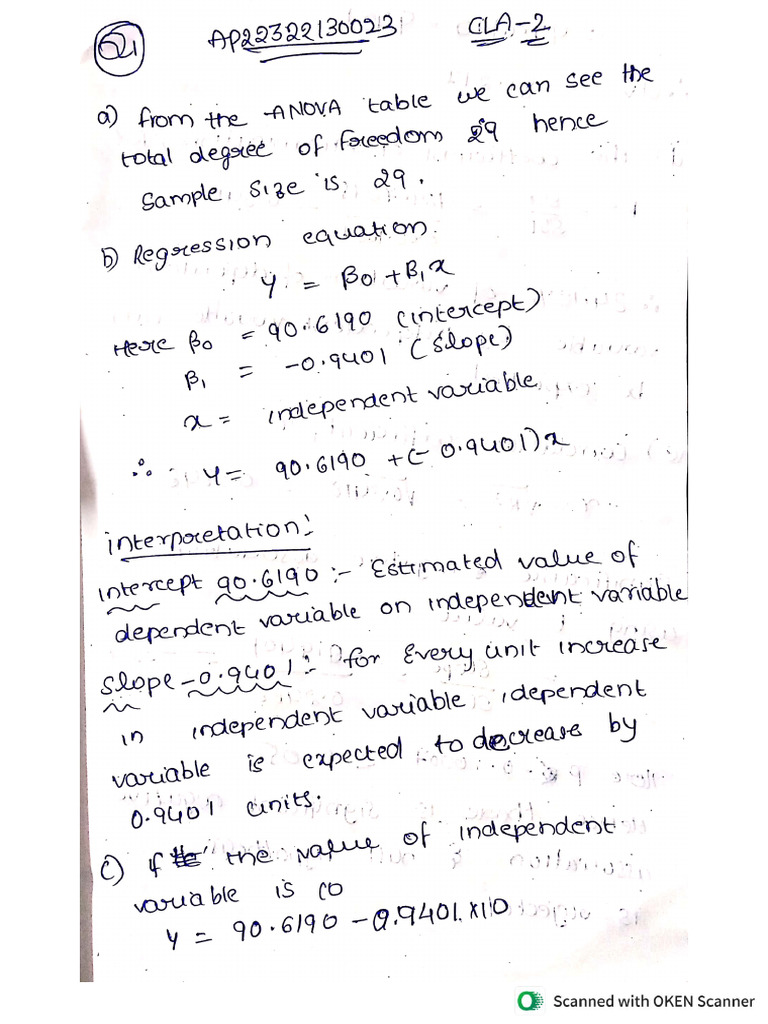 Q1 AP22322130023 CLA-2
a) from the ANOVA table we can see the
total degree of freedom 29 hence
sample size is 29.
b) Regression equation.
y = β0 + β1x
Here β0 = 90.6190 (intercept)
β1 = -0.9401 (slope)
x = independent variable
∴ y = 90.6190 + (-0.9401)x
interpretation:
intercept 90.6190 :- Estimated value of
dependent variable on independent variable
slope -0.9401 :- for every unit increase
in independent variable, dependent
variable is expected to decrease by
0.9401 units.
c) If the value of independent
variable is 10
y = 90.6190 - 0.9401 x 10
Scanned with OKEN Scanner